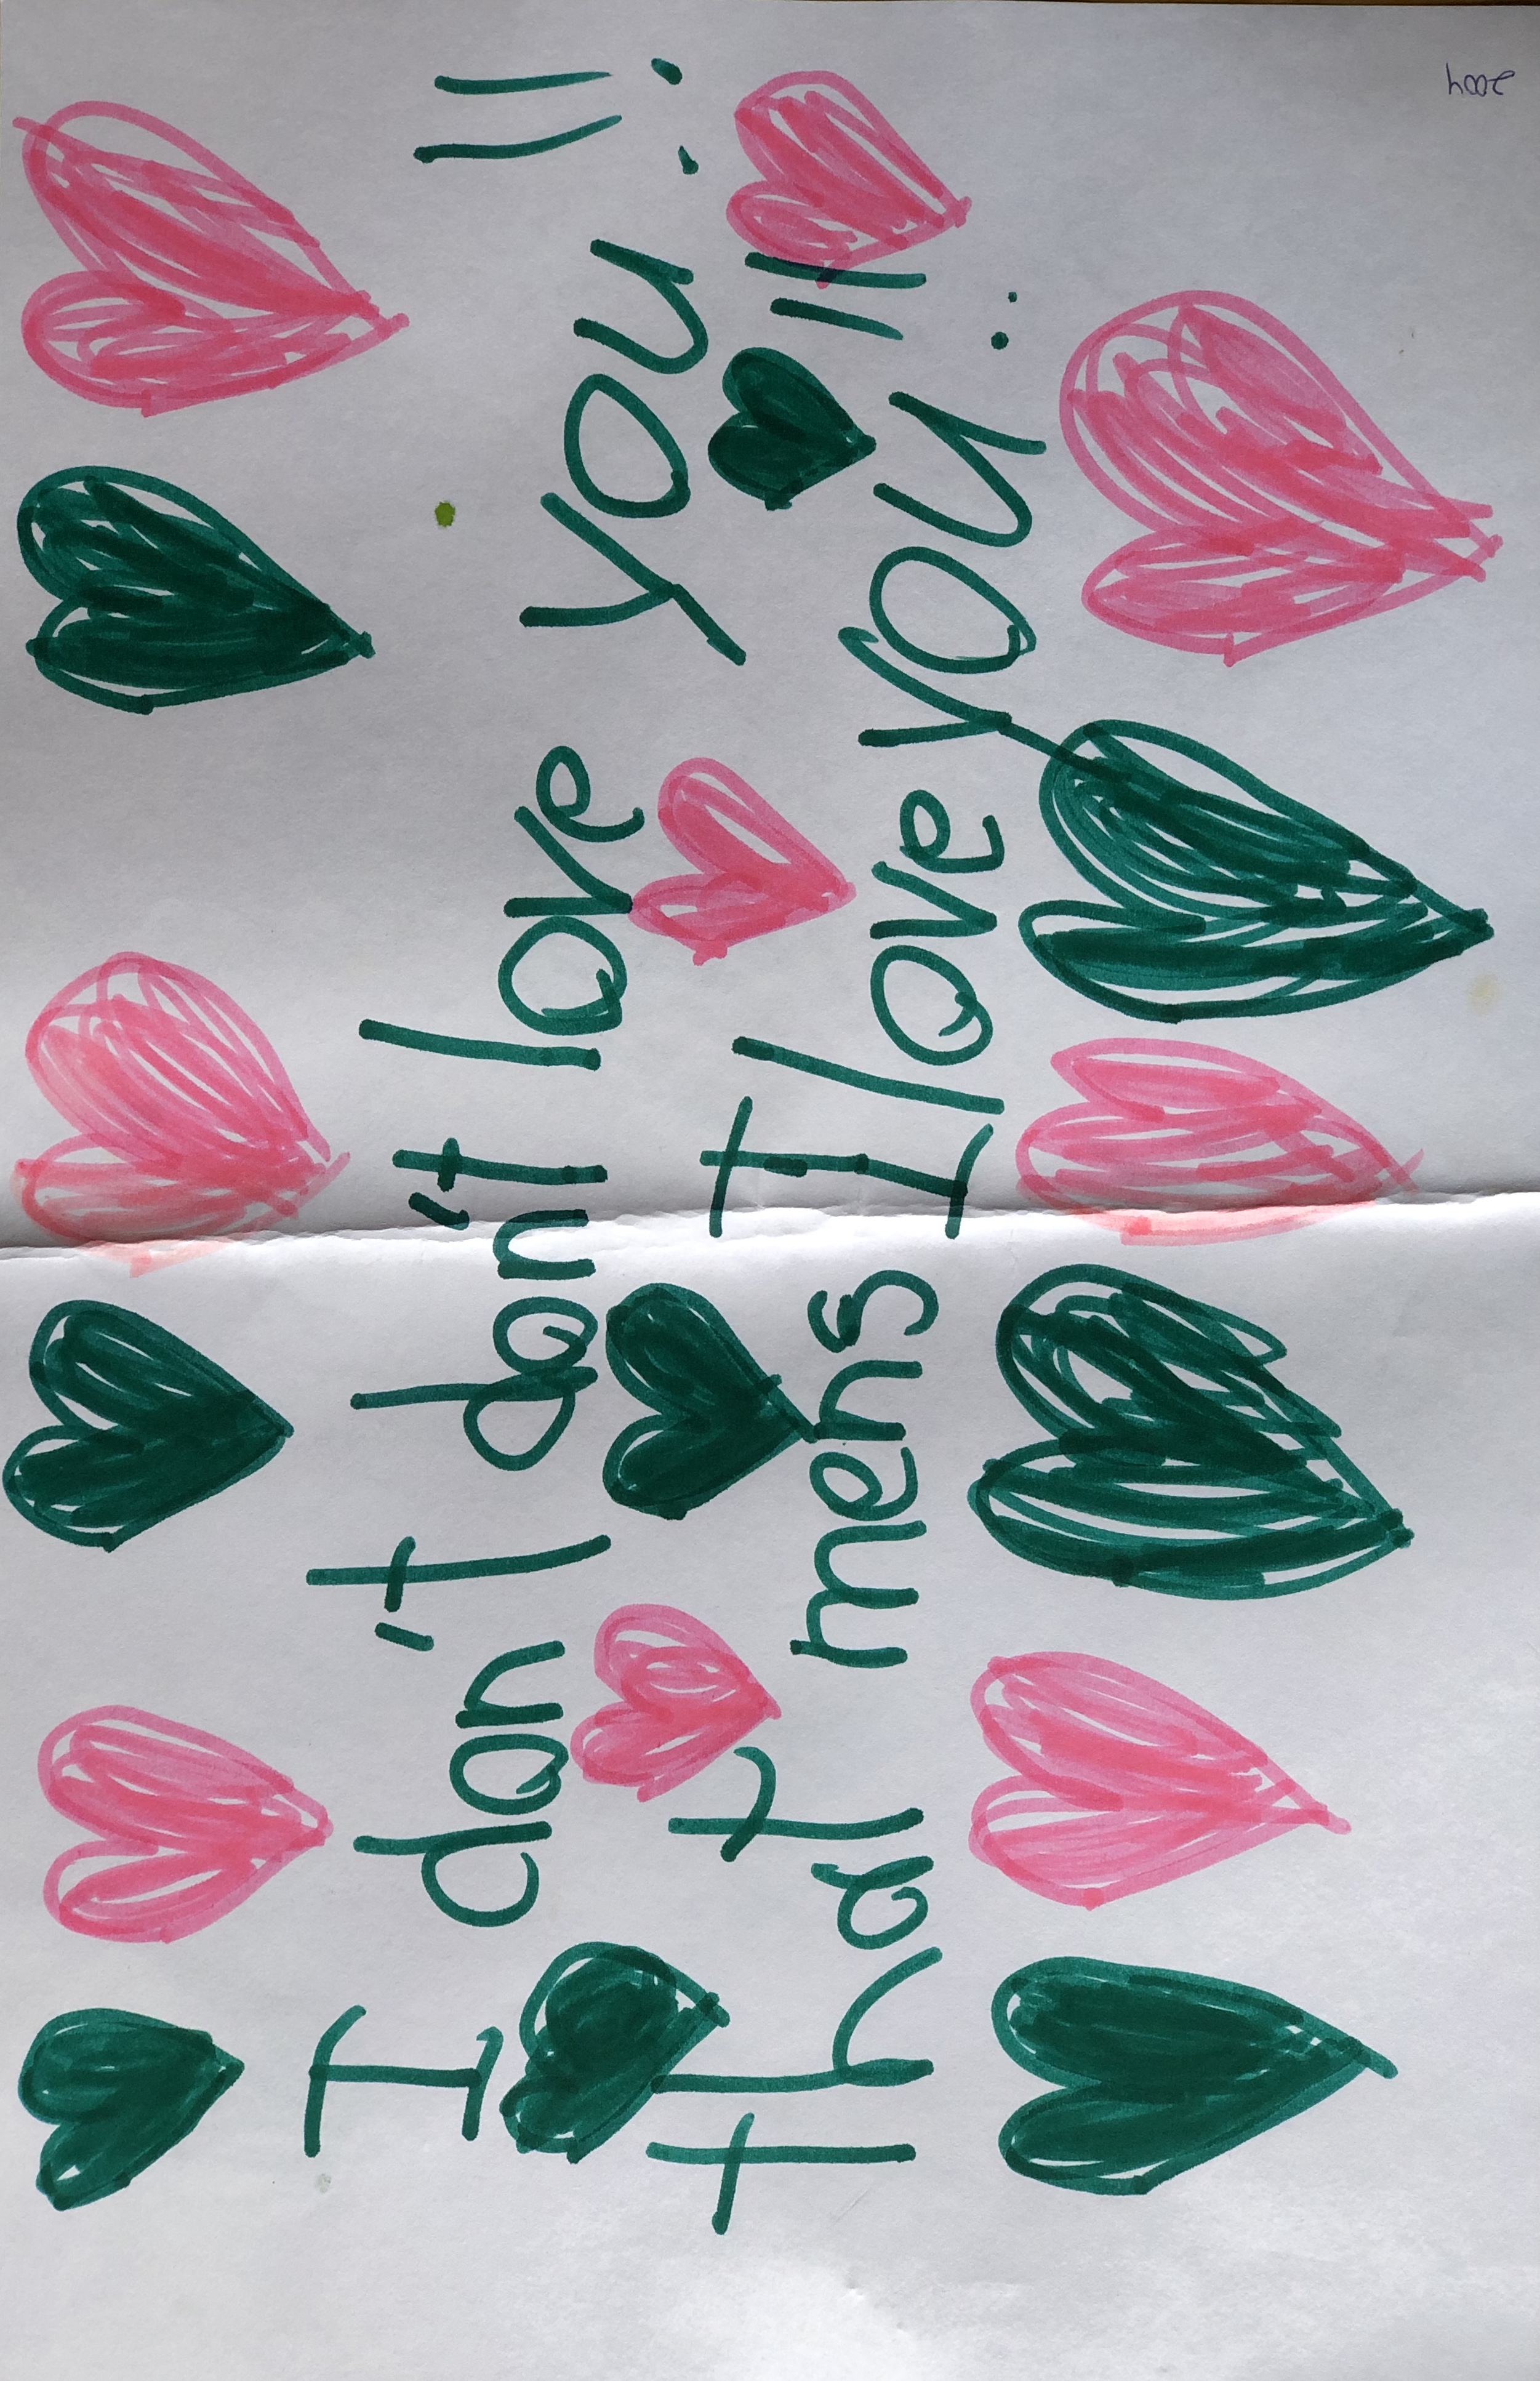 I don't don't love you!!
that mens I love you!!
2004